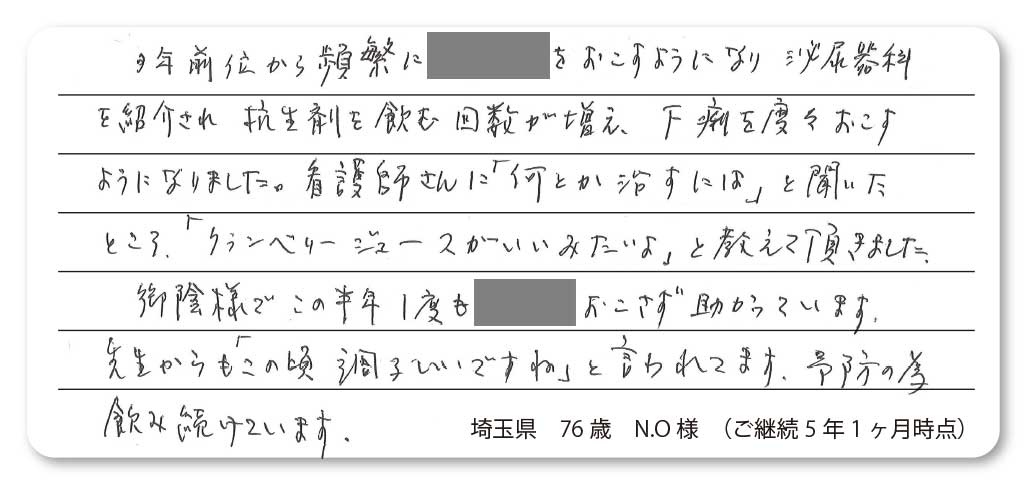 9年前位から頻繁に をおこすようになり 泌尿器科
を紹介され 抗生剤を飲む回数が増え、下痢を度々おこす
ようになりました。看護師さんに「何とか治すには」と聞いた
ところ、「クランベリージュースがいいみたいよ」と教えて頂きました。
御陰様でこの半年1度も おこさず助かっています。
先生からも「この頃 調子いいですね」と言われてます。予防の為
飲み続けています。
埼玉県 76歳 N.O様 (ご継続5年1ヶ月時点)